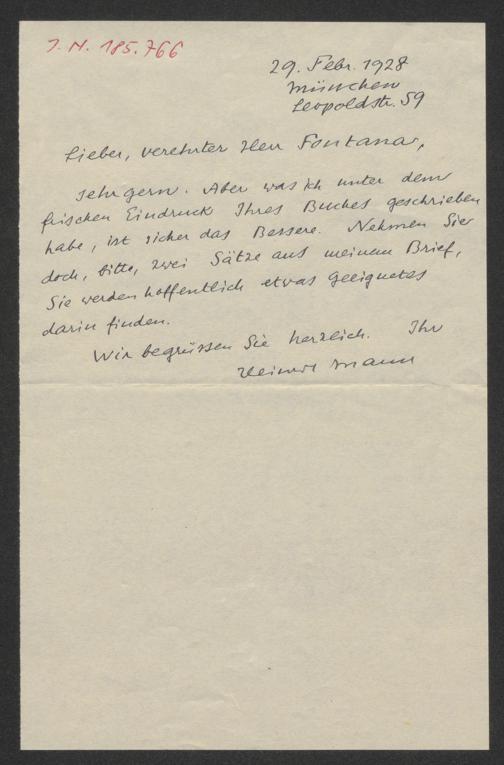 I. N. 185.766
29. Febr. 1928
München
Leopoldstr. 59
Lieber, verehrter Herr Fontana,
sehr gern. Aber was ich unter dem
frischen Eindruck Ihres Buches geschrieben
habe, ist sicher das Bessere. Nehmen Sie
doch, bitte, zwei Sätze aus meinem Brief,
Sie werden hoffentlich etwas Geeignetes
darin finden.
Wir begrüssen Sie herzlich. Ihr
Heinrich Mann